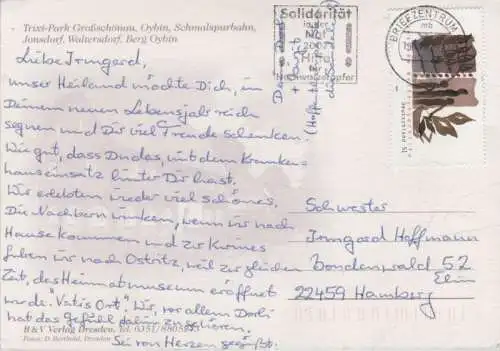 Trixi-Park Großschönau, Oybin, Schmalspurbahn,
Jonsdorf, Waltersdorf, Berg Oybin
Liebe Irmgard,
unser Heiland möchte Dich, in
Deinem neuen Lebensjahr reich
segnen und Dir viel Freude schenken.
Wie gut, dass Du das, mit dem Kranken-
hauseinsatz hinter Dir hast.
Wir erlebten wieder viel schönes.
Die Nachbarn winken, wenn wir nach
Hause kommen und zur Kirmes
fuhren wir nach Ostritz, weil zur gleichen
Zeit, das Heimatmuseum eröffnet
wurde. "Vatis Ort". Wir, vor allem
hat das Gefühl dahin zu gehören.
Sei von Herzen gegrüßt.
B & V Verlag Dresden, Tel. 0351/
Fotos: D. Berthold, Dresden
Solidarität
in
Not
20
Hi
für
Hochwasseropfer
BRIEFZENTRUM
mb
Schwester
Irmgard Hoffmann
Bondenwald 52
22459 Hamburg